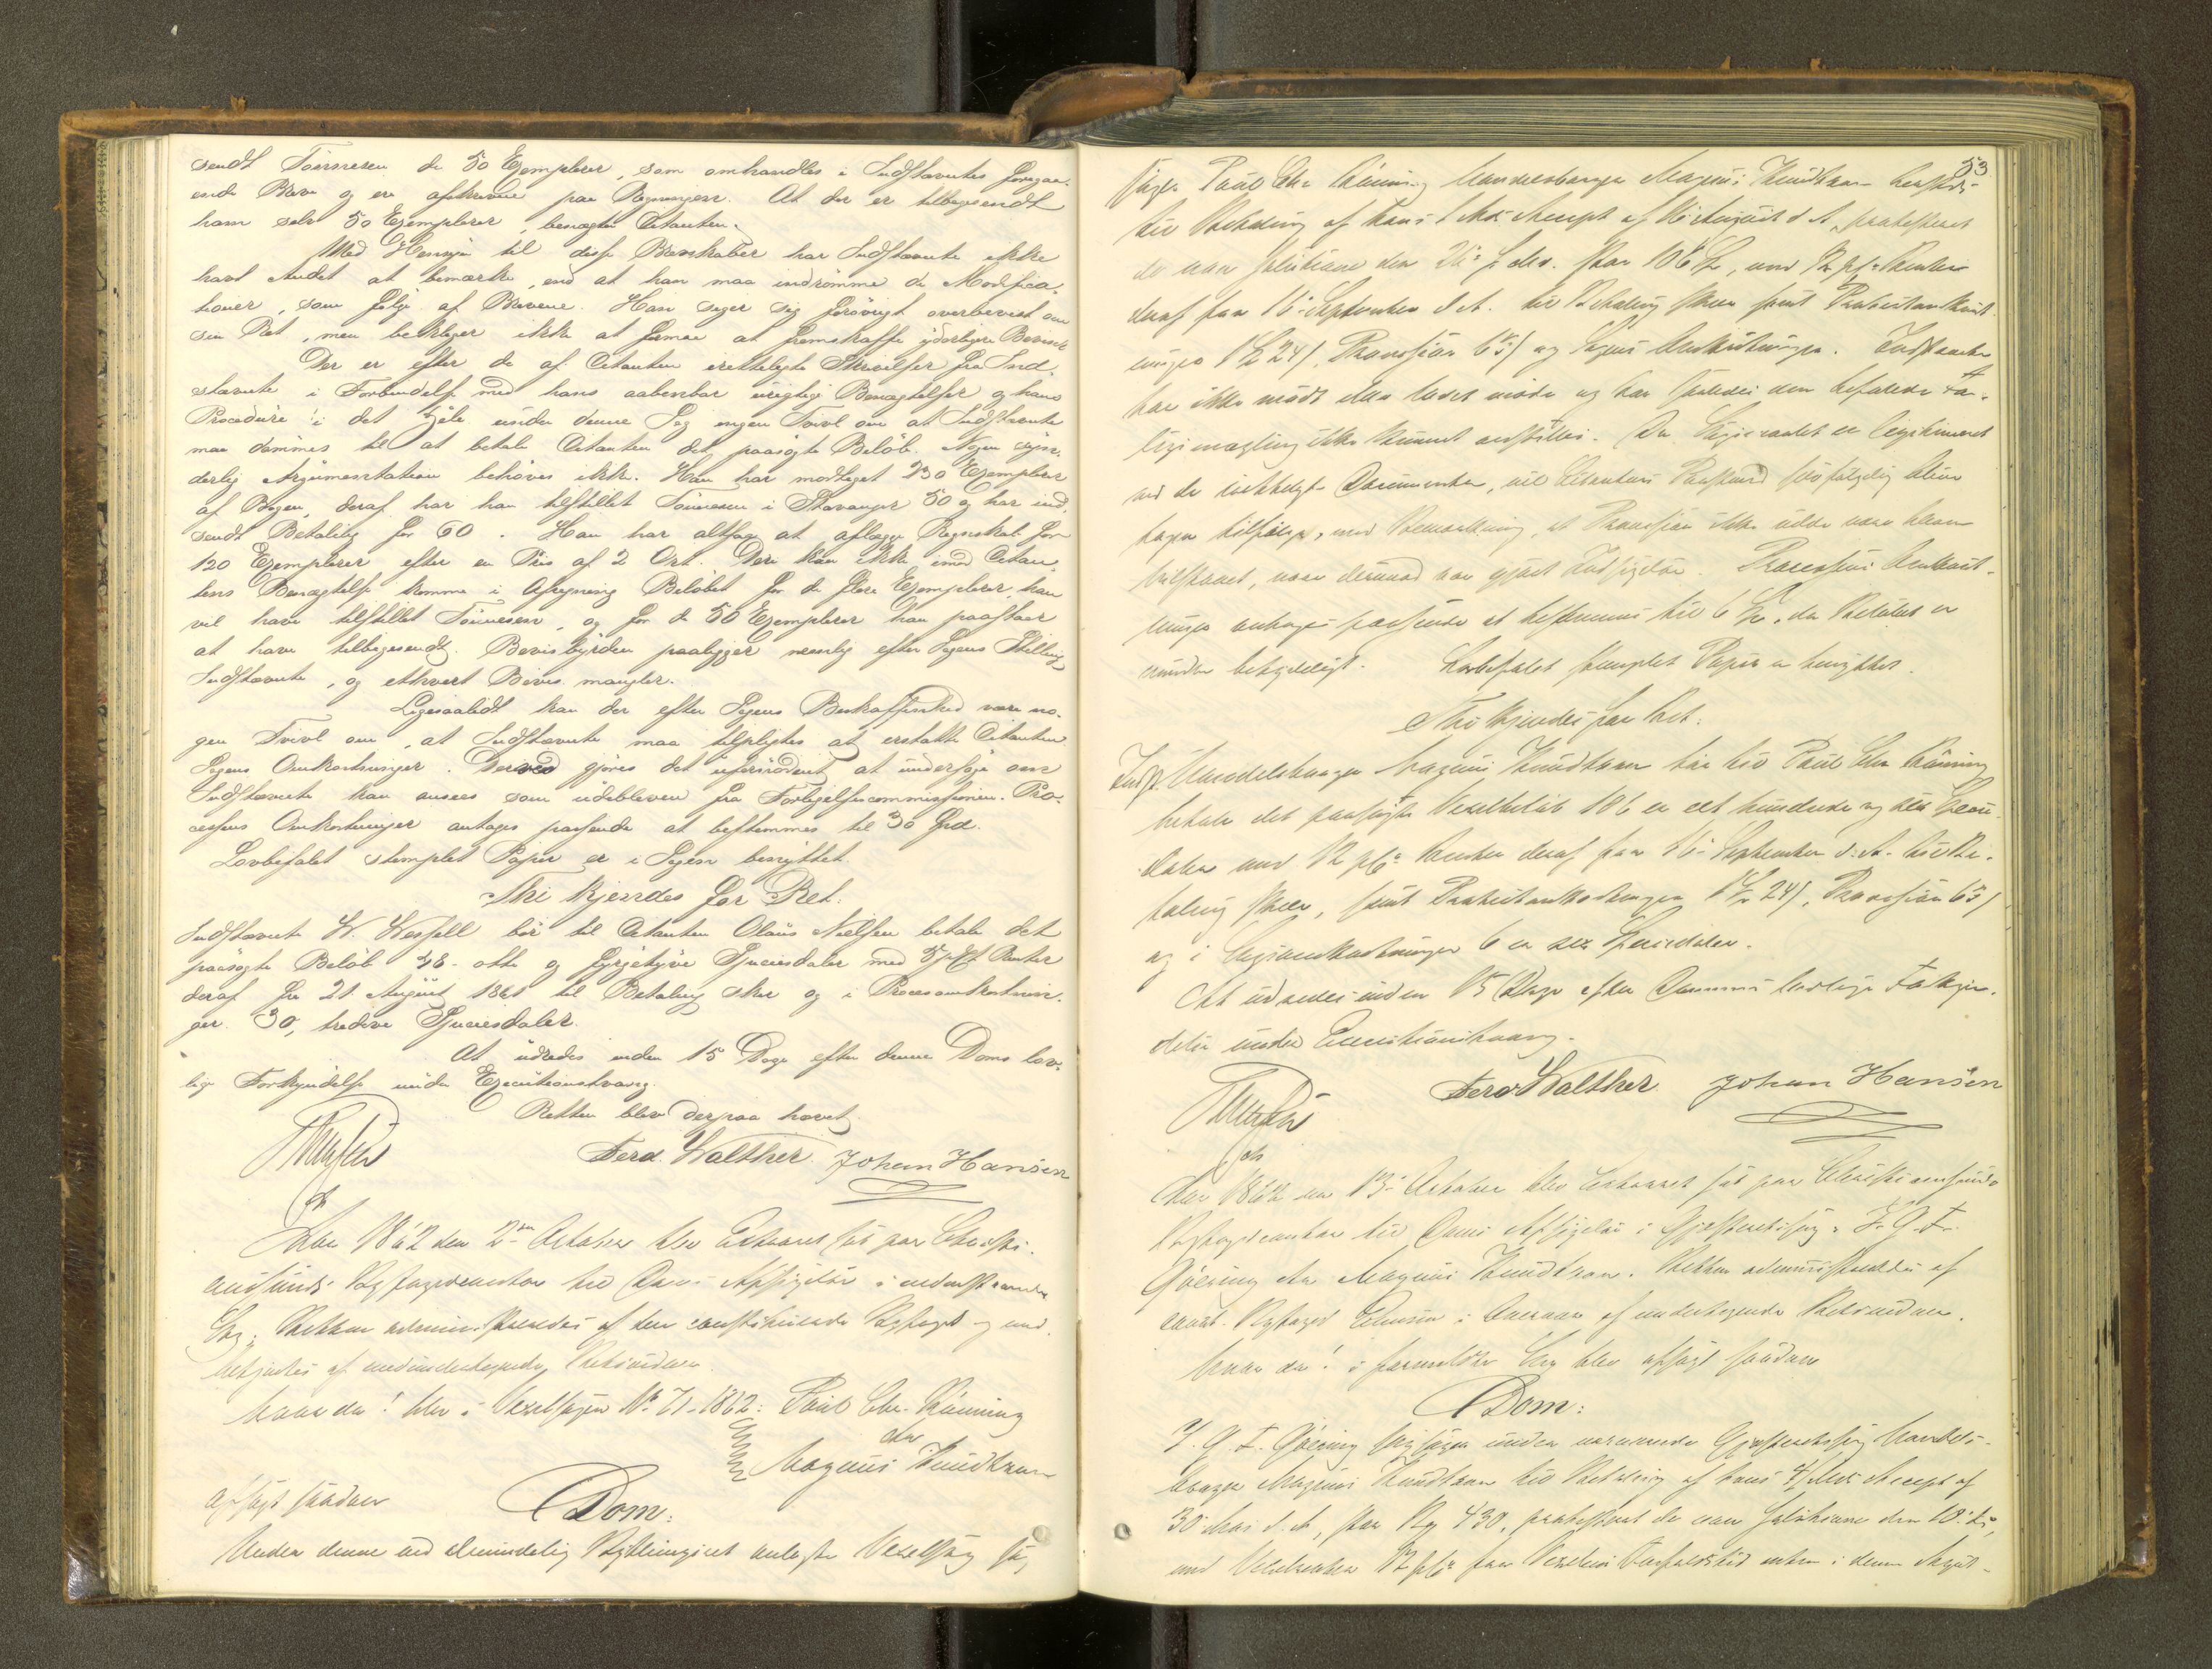 sendt Tönnesen de 50 Exemplarer, som omhandles i Indstævntes foregaa-
ende Breve og ere afskrevne paa Regningen. At der er tilbagesendt
ham selv 50 Exemplarer, benægter Citanten.
Med Hensyn til disse Brevskaber har Indstævnte ikke
havt Andet at bemærke, end at han maa indrømme de Modifica-
tioner, som følge af Brevene. Han siger sig forövrigt overbevist om
sin Ret, men beklager ikke at formaa at fremskaffe yderligere Beviser
Der er efter de af Citanten irettelagte Skrivelser fra Ind-
stævnte i Forbindelse med hans aabenbar urigtige Benægtelser og hans
Procedure i det Hele under denne Sag ingen Tvivl om at Indstævnte
maa dömmes til at betale Citanten det paasögte Belöb. Nogen vidt-
derlig Argumentation behöves ikke. Han har modtaget 230 Exemplarer
af Bogen, deraf har han tilstillet Tönnesen i Stavanger 50 og har ind-
sendt Betaling for 60. Han har altsaa at aflægge Regnskab for
120 Exemplarer efter en Pris af 2 Ort. Der kan ikke imod Citan-
tens Benægtelse komme i Afregning Belöbet for de flere Exemplarer, han
vil have tilstillet Tönnesen, og for de 50 Exemplarer han paastaar
at have tilbagesendt. Bevisbyrden paaligger nemlig efter Sagens Stilling
Indstævnte, og ethvert Bevis mangler.
Ligesaalidt kan der efter Sagens Beskaffenhed være no-
gen Tvivl om, at Indstævnte maa tilpligtes at erstatte Citanten
Sagens Omkostninger. Derved gjöres det ufornödent at undersöge om
Indstævnte kan ansees som udebleven fra Forligelsescommissionen. Pro-
cessens Omkostninger antages passende at bestemmes til 30 Spd.
Lovbefalet stemplet Papir er i Sagen benyttet.
Thi kjendes for Ret:
Indstævnte W. Wessell bör til Citanten Olaus Nielsen betale det
paasögte Belöb 48 - otte og fyrgetyve Speciesdaler med 5 pCt Renter
deraf fra 21. August 1861 til Betaling sker og i Procesomkostnin-
ger 30, tredive Speciesdaler.
At udredes inden 15 Dage efter denne Doms lov-
lige Forkyndelse under Executionstvang.
Retten blev derpaa hævet
Ferd. Walther Johan Hansen
Aar 1862 den 2den October blev Extraret sat paa Christi-
ansunds Bygfogedcontor til Doms Afsigelse i nedenstaaende
Sag. Retten administreredes af den constituerede Byfoged og med-
betjentes af medundertegnede Retsvidner.
Hvor da! blev i Vexelsagen No 71-1862: Paul Chr. Rönning
ctr
Magnus Knudtzon
afsagt saadan
Dom:
Under denne ved almindelig Bythingsret anlagte Vexelsag sag-
53
söger Paul Chr. Rönning Handelsborger Magnus Knudtzon
til Betaling af hans 1 Mds. Accept af 16 August d. A, protesteret
de non solutione den
deraf fra 16 September d. A. til Betaling skeer samt Protestomkost-
ninger 1 Spd 24 s, Provision 65 s og Sagens Omkostninger. Indstævnte
har ikke mödt eller ladet möde og har saaledes den befalede For-
ligsmægling ikke kunnet anstilles. Da Sögsmaalet er legitimeret
ved de irettelagte Documenter, vil Citantens Paastand
tages tilfölge, med Bemærkning, at Provision ikke vilde være bleven
tilstaaet, naar derimod var gjort Indsigelse. Processens Omkost-
ninger antages passende at bestemmes til 6 Spd, da Belöbet er
mindre betydeligt. Lovbefalet stemplet Papir er benyttet.
Thi kjendes for Ret:
Indst. Handelsborger Magnus Knudtzon bör til Paul Chr. Rönning
betale det paasögte Vexelbelöb 106 er eet hundrede og sex Specie-
daler med 12 pCt Renter deraf fra 16 September d. A. til Be-
taling skeer, samt Protestomkostninger 1 Spd 24 s, Provision 65 s
og i Sagsomkostninger 6 er sex Speciedaler.
At udredes inden 15 Dage efter Dommens lovlige Forkyn-
delse under Executionstvang.
Ferd Walther Johan Hansen
Aar 1862 den 13 October blev Extraret sat paa Christiansunds
Byfogedcontor til Doms Afsigelse i Gjesteretssag: J. G. F.
Göering ctr Magnus Knudtzon. Retten administreredes af
const. Byfoged i Overvær af undertegnede Retsvidner.
Hvor da! i formeldte Sag blev afsagt saadan
Dom:
J. G. F. Göering sagsöger under nærværende Gjesteretssag Handels-
borger Magnus Knudtzon til Betaling af hans 4/Mds Accept af
30 Mai d. A, stor 430, protesteret de non solutione den
med Vexelrenter 12 pCt fra Vexelens Forfaldstid